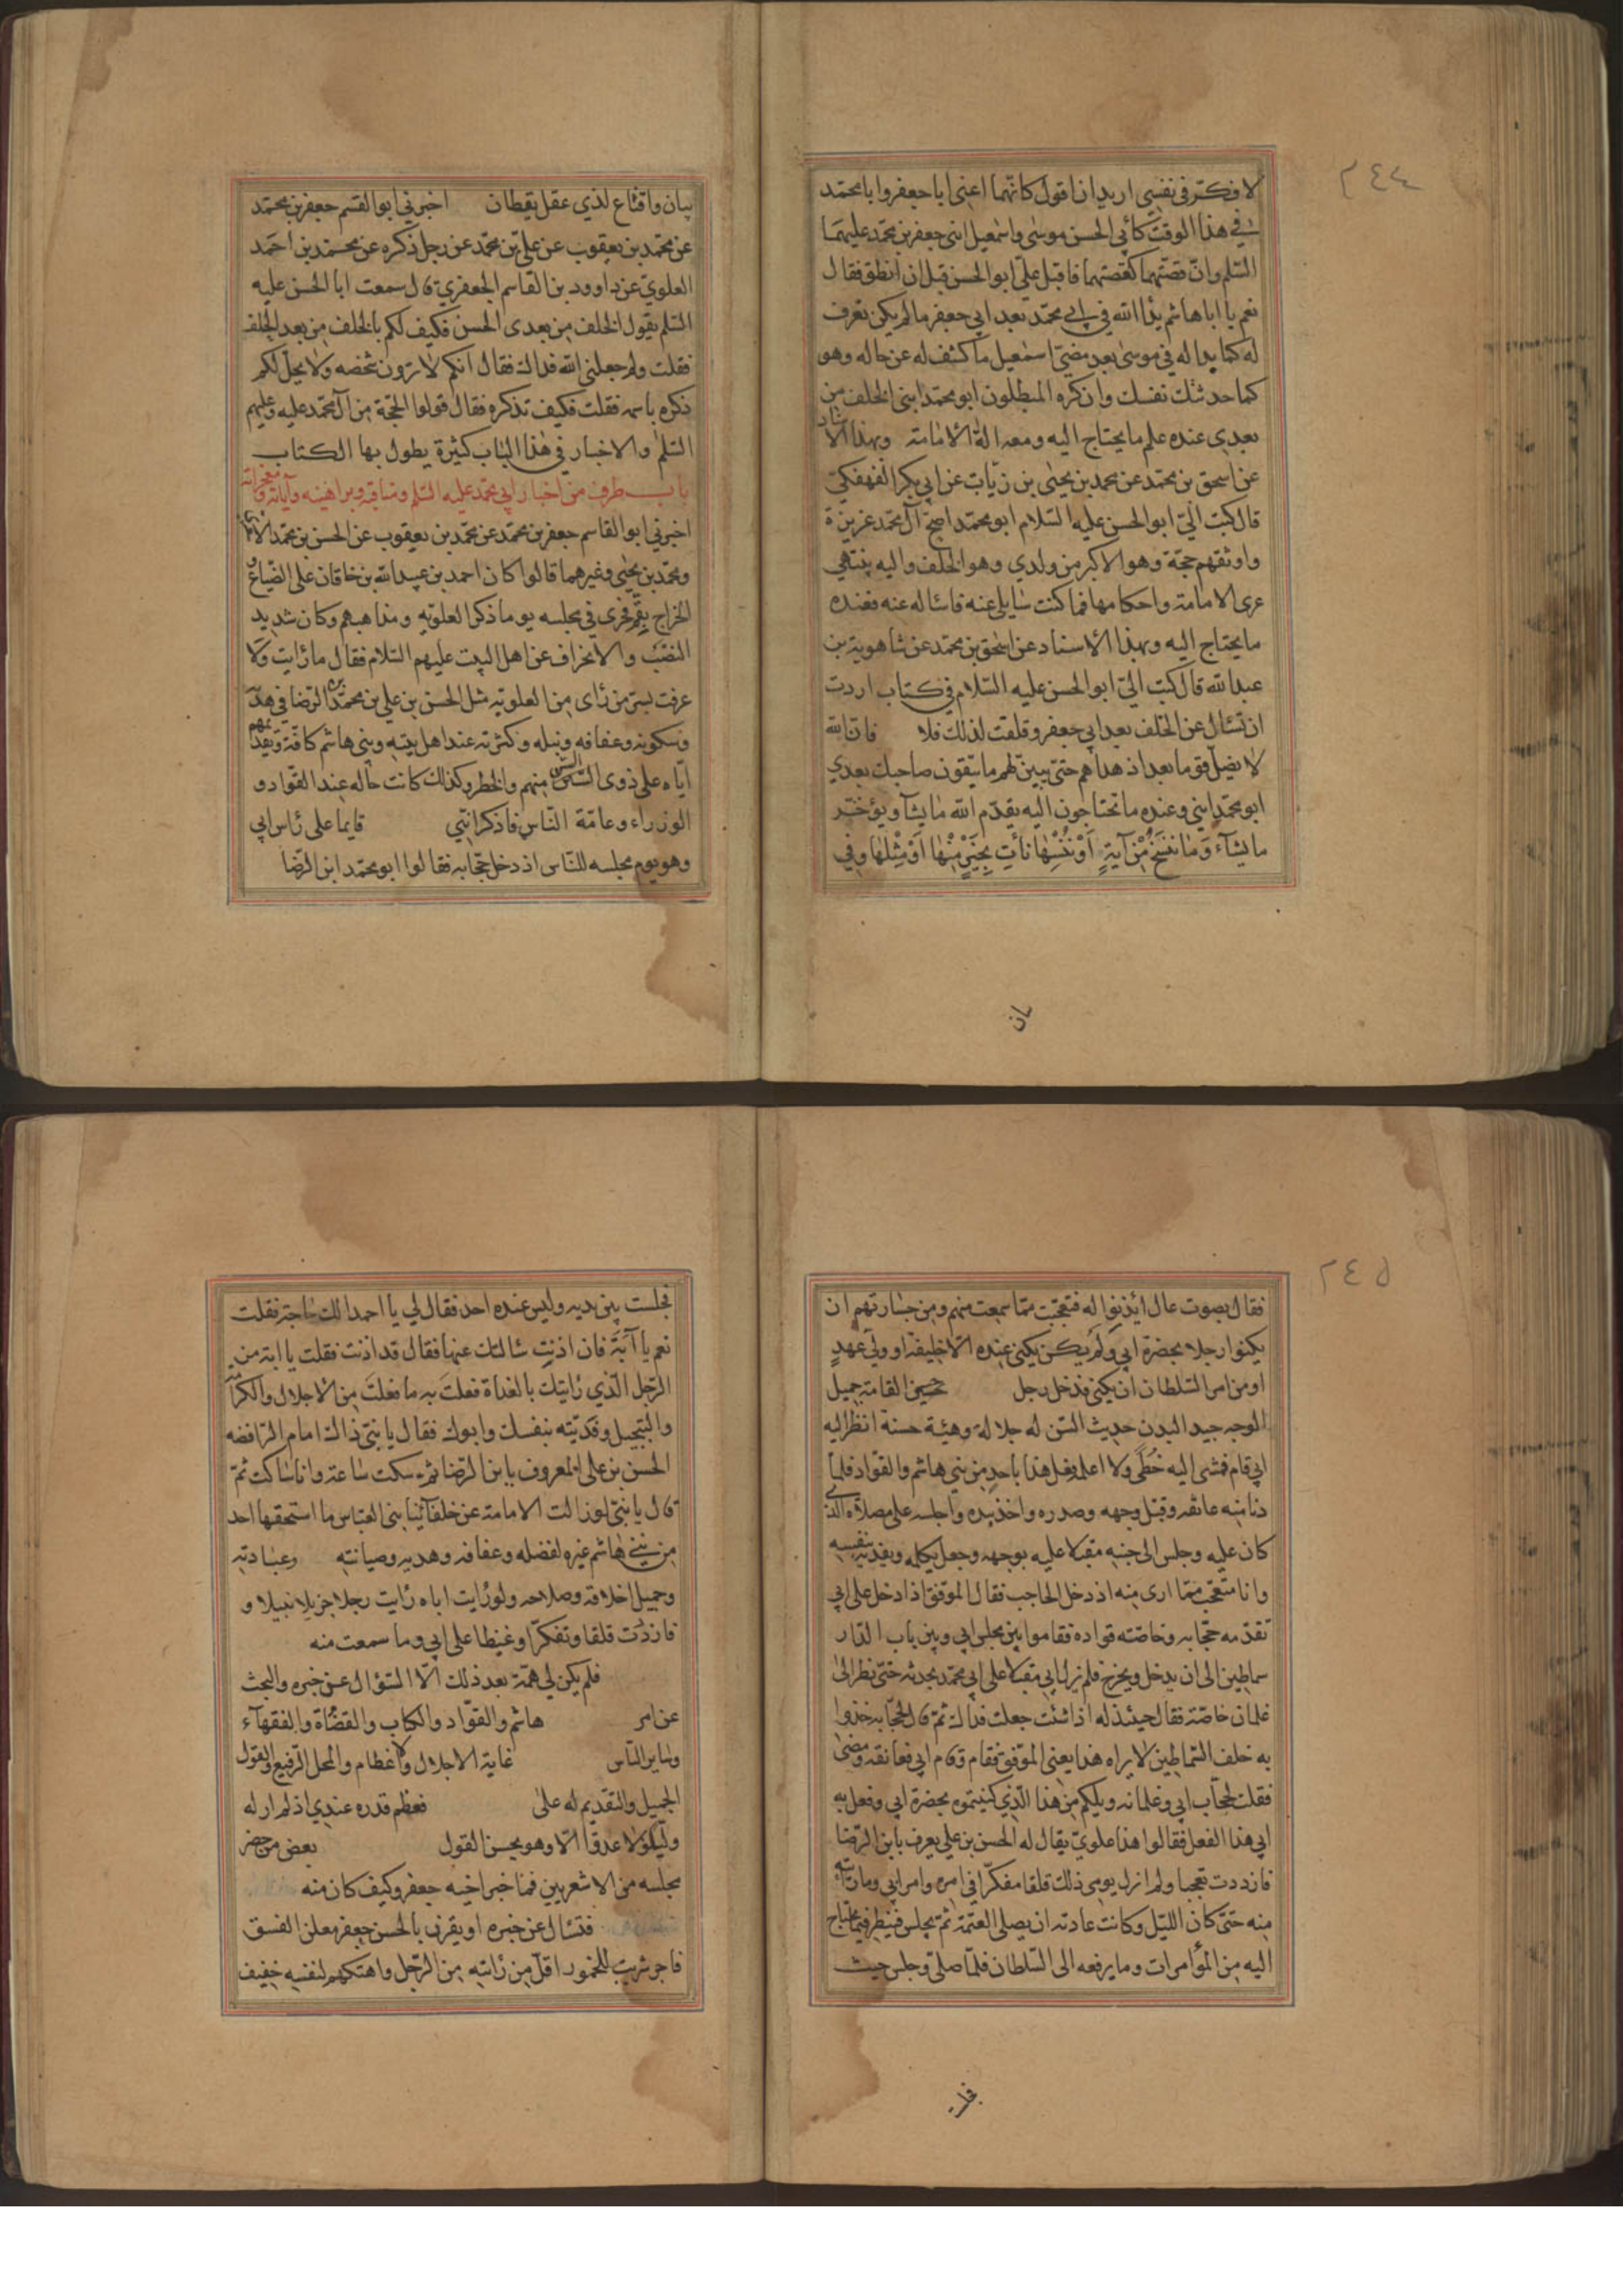 ٢٤٤
لافكّر في نفسي اريد ان اقول كانّهما اعني ابا جعفر وابا محمّد
في هذا الوقت كأبي الحسن موسى واسمعيل ابني جعفر بن محمّد عليهما
السّلم وانّ قصّتهما كقصتهما فاقبل عليّ ابو الحسن قبل ان انطق فقال
نعم يا ابا هاشم بدا الله في ابي محمّد بعد ابي جعفر ما لم يكن تعرف
له كما بدا له في موسى بعد مضيّ اسمعيل ما كشف له عن حاله وهو
كما حدثتك نفسك وان كره المبطلون ابو محمّد ابني الخلف من
بعدي عنده علم ما يحتاج اليه ومعه الة الامامة وبهذا الاسناد
عن اسحق بن محمّد عن محمد بن يحيى بن زياب عن ابي بكر الفهفكيّ
قال كتب اليّ ابو الحسن عليه السّلام ابو محمّد اصحّ آل محمّد غريزة
واوثقهم حجّة وهو الاكبر من ولدي وهو الخلف واليه ينتهي
عرى الامامة واحكامها فما كنت سايلي عنه فاساله عنه فعنده
ما يحتاج اليه وبهذا الاسناد عن اسحق بن محمّد عن شاهوية بن
عبد الله قال كتب اليّ ابو الحسن عليه السّلام في كتاب اردت
ان تسال عن الخلف بعد ابي جعفر وقلقت لذلك فلا فانّ الله
لا يضلّ قوما بعد اذ هداهم حتّى يبين لهم ما يتّقون صاحبك بعدي
ابو محمّد ابني وعنده ما تحتاجون اليه يقدّم الله ما يشآء ويؤخّر
ما يشآء وَمَا نَنْسَخْ مِنْ آيَةٍ اَوْ نُنْسِهَا نَأتِ بِخَيْرٍ مِنْهَا اَوْ مِثْلِهَا وفي
بيان واقناع لذي عقل يقظان اخبرني ابو القسم جعفر بن محمّد
عن محمّد بن يعقوب عن عليّ بن محمّد عن رجل ذكره عن محمّد بن احمد
العلويّ عن داوود بن القاسم الجعفريّ قال سمعت ابا الحسن عليه
السّلم يقول الخلف من بعدي الحسن فكيف لكم بالخلف من بعد الخلف
فقلت ولم جعلني الله فداك فقال انكم لا ترون شخصه ولا يحلّ لكم
ذكره باسمه فقلت فكيف تذكره فقال قولوا الحجّة من آل محمّد عليه وعليهم
السّلم والاخبار في هذا الباب كثيرة يطول بها الكتاب
باب طرف من اخبار ابي محمّد عليه السّلم ومناقبه وبراهينه وآياته ومعجزاته
اخبرني ابو القاسم جعفر بن محمّد عن محمّد بن يعقوب عن الحسن بن محمّد الاشعري
ومحمّد بن يحيى وغيرهما قالوا كان احمد بن عبيد الله بن خاقان على الضّياع و
الخراج بقم فجرى في مجلسه يوما ذكر العلويّه ومذاهبهم وكان شديد
النصب والانحراف عن اهل البيت عليهم السّلام فقال ما رايت ولا
عرفت بسرّ من رأى من العلويّه مثل الحسن بن علي بن محمّد بن الرّضا في هديه
وسكونه وعفافه ونبله وكثرته عند اهل بيته وبني هاشم كافّة وتقديمهم
ايّاه على ذوي السّن منهم والخطر وكذلك كانت حاله عند القوّاد و
الوزراء وعامّة النّاس فاذكر انّني قايما على رأس ابي
وهو يوم مجلسه للنّاس اذ دخل حجّابه فقالوا ابو محمّد ابن الرّضا
بان
٢٤٥
فقال بصوت عال ائذنوا له فتعجّبت ممّا سمعت منهم ومن جسارتهم ان
يكنوا رجلا بحضرة ابي ولم يكن يكنى عنده الّا خليفة او وليّ عهدٍ
او من امر السّلطان ان يكنى فدخل رجل حسن القامة جميل
الوجه جيد البدن حديث السّن له جلالة وهيئة حسنة فنظر اليه
ابي قام فمشى اليه خُطًى ولا اعلم فعل هذا باحد من بني هاشم والقواد فلمّا
دنا منه عانقه وقبل وجهه وصدره واخذ بيده واجلسه على مصلاه الذي
كان عليه وجلس الى جنبه مقبلا عليه بوجهه وجعل يكلمه ويفديه بنفسه
وانا متعجّب ممّا ارى منه اذ دخل الحاجب فقال الموفّق اذا دخل على ابي
تقدّمه حجّابه وخاصّته قواده فقاموا بين مجلس ابي وبين باب الدّار
سماطين الى ان يدخل ويخرج فلم يزل ابي مقبلا على ابي محمّد يحدثه حتّى نظر الى
غلمان خاصّته فقال حينئذ له اذا شئت جعلت فداك ثمّ قال لحجّابه خذوا
به خلف السّماطين لا يراه هذا يعني الموفّق فقام وقام ابي فعانقه ومضى
فقلت لحجّاب ابي وغلمانه ويلكم من هذا الّذي كنيتموه بحضرة ابي وفعل به
ابي هذا الفعل فقالوا هذا علويّ يقال له الحسن بن علي يعرف بابن الرّضا
فازددت تعجبا ولم ازل يومي ذلك قلقا مفكّرا في امره وامر ابي وما رايته
منه حتّى كان اللّيل وكانت عادته ان يصلي العتمة ثمّ يجلس فينظر فيما يحتاج
اليه من المؤامرات وما يرفعه الى السّلطان فلمّا صلّى وجلس جيت
فجلست بين يديه وليس عنده احد فقال لي يا احمد الك حاجة فقلت
نعم يا اَبَة فان اذنت سالتك عنها فقال قد اذنت فقلت يا ابة من
الرّجل الّذي رايتك بالغداة فعلت به ما فعلت من الاجلال والكرامة
والتبجيل وفديته بنفسك وابوك فقال يا بنيّ ذاك امام الرّافضه
الحسن بن علي المعروف بابن الرّضا ثمّ سكت ساعة وانا ساكت ثمّ
قال يا بنيّ لو زالت الامامة عن خلفائنا بني العبّاس ما استحقها احد
من بني هاشم غيره لفضله وعفافه وهديه وصيانته وعبادته
وجميل اخلاقه وصلاحه ولو رايت اباه رايت رجلا جزيلا نبيلا و
فازددت قلقا وتفكّرا وغيظا على ابي وما سمعت منه
فلم يكن لي همّة بعد ذلك الّا السّؤال عن خبره والبحث
عن امر هاشم والقوّاد والكتاب والقضاة والفقهآء
وساير النّاس غاية الاجلال والاعظام والمحل الرّفيع والقول
الجميل والتقديم له على فعظم قدره عندي اذ لم ار له
وليّا ولا عدوّا الّا وهو يحسن القول بعض من حضر
مجلسه من الاشعريين فما خبر اخيه جعفر وكيف كان منه
فتسال عن خبره او يقرن بالحسن جعفر معلن الفسق
فاجر شريب للخمور اقلّ من رايته من الرّجل واهتكهم لنفسه خفيف
فجلـ